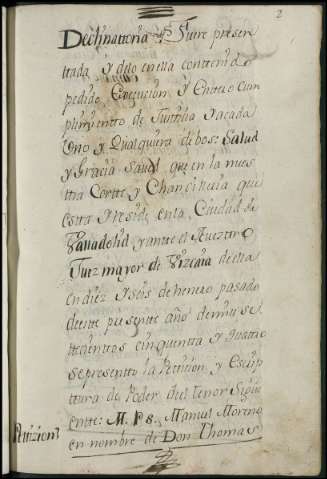 2
Declinattoria q̃ Fuere presen
ttada y delo enella conttenido
pedido, Execucion y Entero cum
plimientto de Justtizia acada
Uno y Qualquiera debos: Salud
y Grazia Saved que en la nues
tra Cortte y Chanzilleria que
esta y reside enla Ciudad de
Valladolid y antte el Nuesttro
Juez mayor de Vizcaia della
en diez y seis de henero pasado
deeste presentte año demill se
ttecienttos cinquentta y quattro
se presentto la Petizion y Escrip
ttura de Poder del tenor Sigui
entte: M. P. S. Manuel Moreno
Pettizion
en nombre de Don Thomas